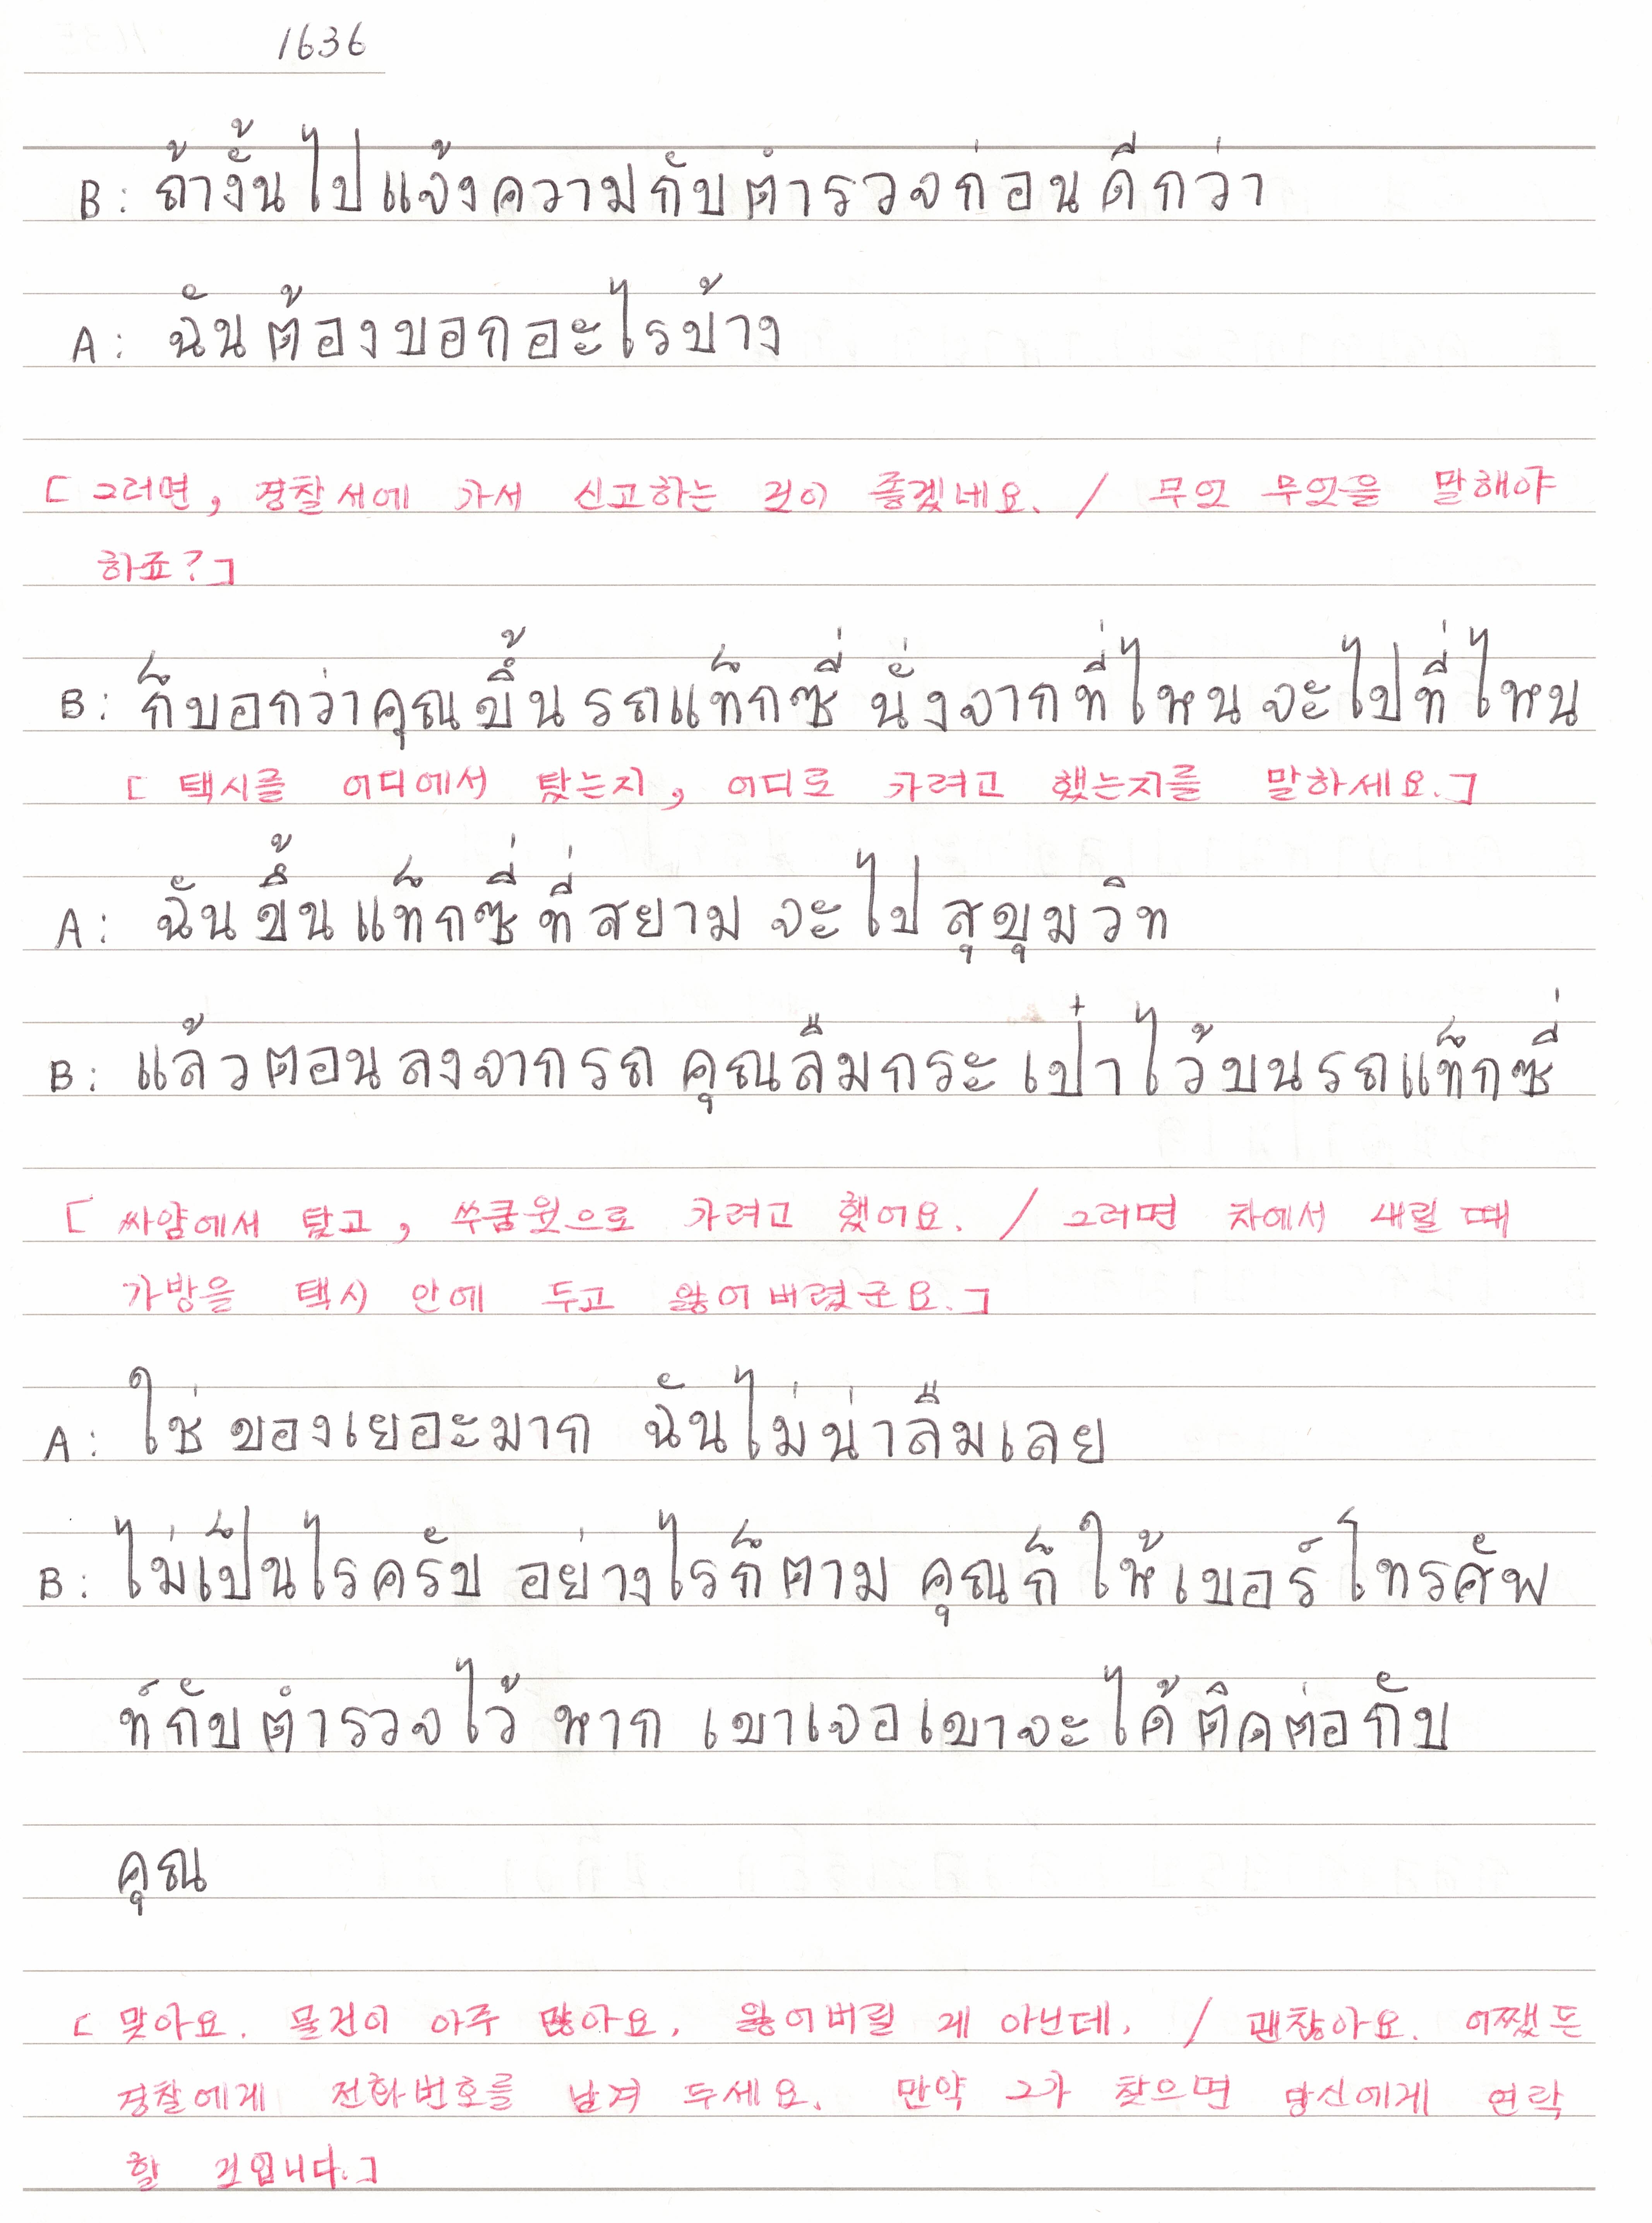 1636
B: ถ้างั้นไปแจ้งความกับตำรวจก่อนดีกว่า
A: ฉันต้องบอกอะไรบ้าง
[ 그러면, 경찰서에 가서 신고하는 것이 좋겠네요. / 무엇 무엇을 말해야
하죠?]
B: ก็บอกว่าคุณขึ้นรถแท็กซี่ นั่งจากที่ไหน จะไปที่ไหน
[ 택시를 어디에서 탔는지, 어디로 가려고 했는지를 말하세요.]
A: ฉันขึ้นแท็กซี่ที่สยาม จะไปสุขุมวิท
B: แล้วตอนลงจากรถ คุณลืมกระเป๋าไว้บนรถแท็กซี่
[ 싸얌에서 탔고, 쑤쿰윗으로 가려고 했어요. / 그러면 차에서 내릴 때
가방을 택시 안에 두고 잃어버렸군요.]
A: ใช่ ของเยอะมาก ฉันไม่น่าลืมเลย
B: ไม่เป็นไรครับ อย่างไรก็ตาม คุณก็ให้เบอร์โทรศัพ
ท์กับตำรวจไว้ หาก เขาเจอเขาจะได้ติดต่อกับ
คุณ
[ 맞아요. 물건이 아주 많아요. 잃어버릴 게 아닌데. / 괜찮아요. 어쨌든
경찰에게 전화번호를 남겨 두세요. 만약 그가 찾으면 당신에게 연락
할 것입니다.]